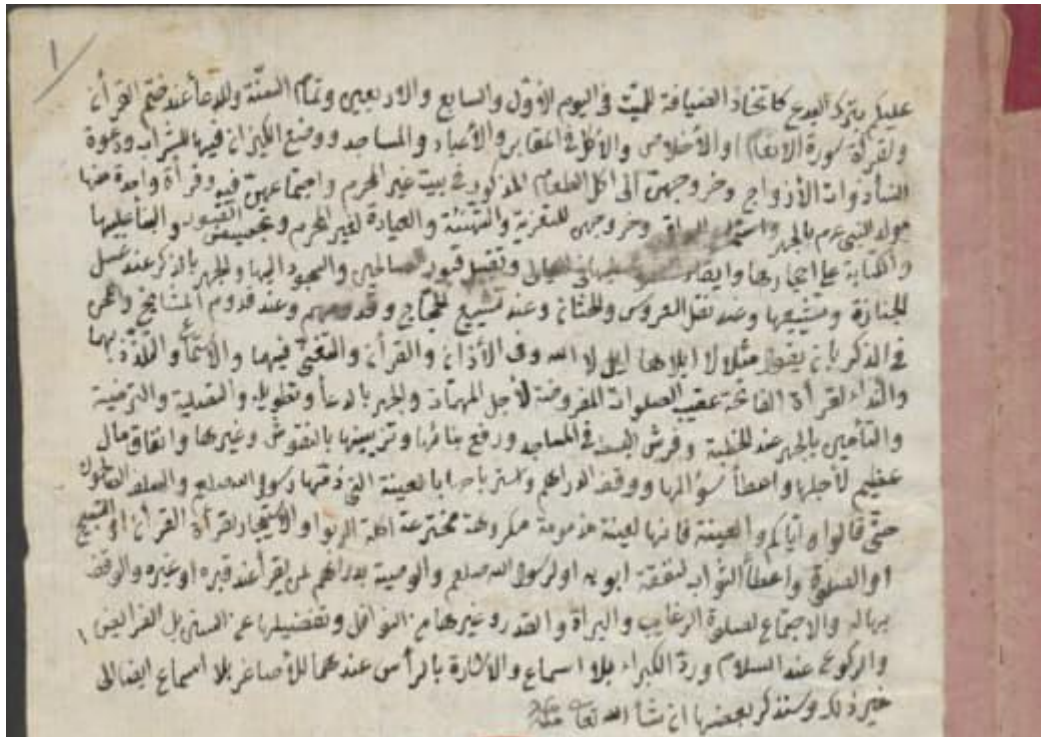 ١
عليكم بترك البدع كاتخاذ الضيافة للميت فى اليوم الاول والسابع والاربعين وتمام السنة وللدعأ عند ختم القرأن
ولقرأة سورة الانعام او الأخلاص والأكل فى المقابر والأعياد والمساجد ووضع الكيزان فيها للشراب ودعوة
النسأ ذوات الأزواج وخروجهن الى اكل الطعام المذكور فى بيت غير المحرم واجتماعهن فيه وقرأة واحدة منها
مولد النبى عم بالجهر وخروجهن للتعزية والتهنئة والعيادة لغير المحرم وتجصيص القبور والبنأ عليها
والكتابة على احجارها وايقاد الليالى وتقبيل قبور الصالحين والسجود اليها والجهر بالذكر عند غسل
الجنازة وتشييعها وعند نقل العروس والختان وعند تشييع الحجاج وقدومهم وعند قدوم المشايخ واللحن
فى الذكر بان يقول مثلا لا ايلاها ايل لا الله وفى الأذان والقرأن والتغنى فيهما والأستماع والتلذذ بهما
والندأ لقرأة الفاتحة عقيب الصلوات المفروضة لأجل المهمات والجهر بالدعأ وتطويله والتصلية والترضية
والتأمين بالجهر عند الخطبة وفرش البسط فى المساجد ورفع بنائها وتزيينها بالنقوش وغيرها وانفاق مال
عظيم لأجلها واعطأ سؤالها ووقف الدراهم واسترباحها بالعينة التى ذمها رسول الله صلعم والسلف الصالحون
حتى قالوا واياكم والعينة فانها لعينة مذمومة مكروهة مخترعة اكلة الربوا والاستيجار لقرأة القرأن او التسبيح
او الصلوة واعطأ الثواب لنفقة ابويه او لرسول الله صلعم والوصية بدراهم لمن يقرأ عند قبره او غيره والوقف
بهاله والاجتماع لصلوة الرغايب والبراة والقدر وغيرها من النوافل وتفضيلها على السنن بل الفرايض
والركوع عند السلام ورد الكبراء بلا اسماع والأشارة بالرأس عندهما للأصاغر بلا اسماع ايضا الى
غير ذلك وسنذكر بعضها ان شأ الله تعا